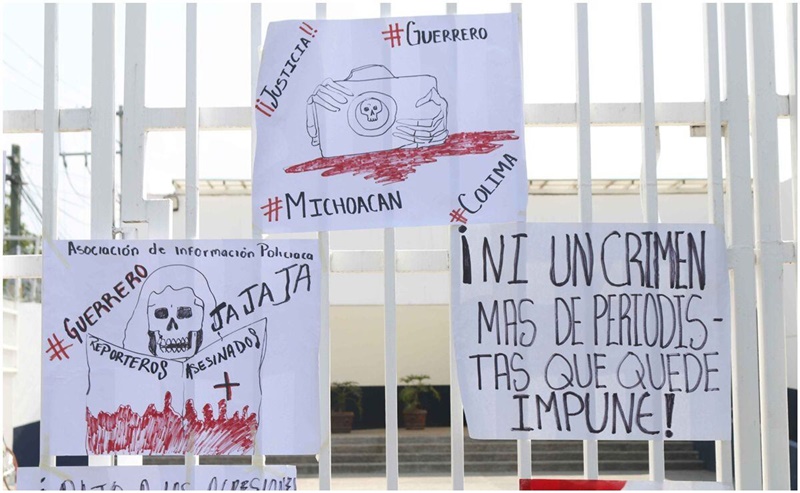 ¡¡JUSTICIA!!
#GUERRERO
#MICHOACAN
#COLIMA
ASOCIACIÓN DE INFORMACIÓN POLICIACA
#GUERRERO
JA JA JA
REPORTEROS ASESINADOS
¡NI UN CRIMEN
MAS DE PERIODIS-
TAS QUE QUEDE
IMPUNE!